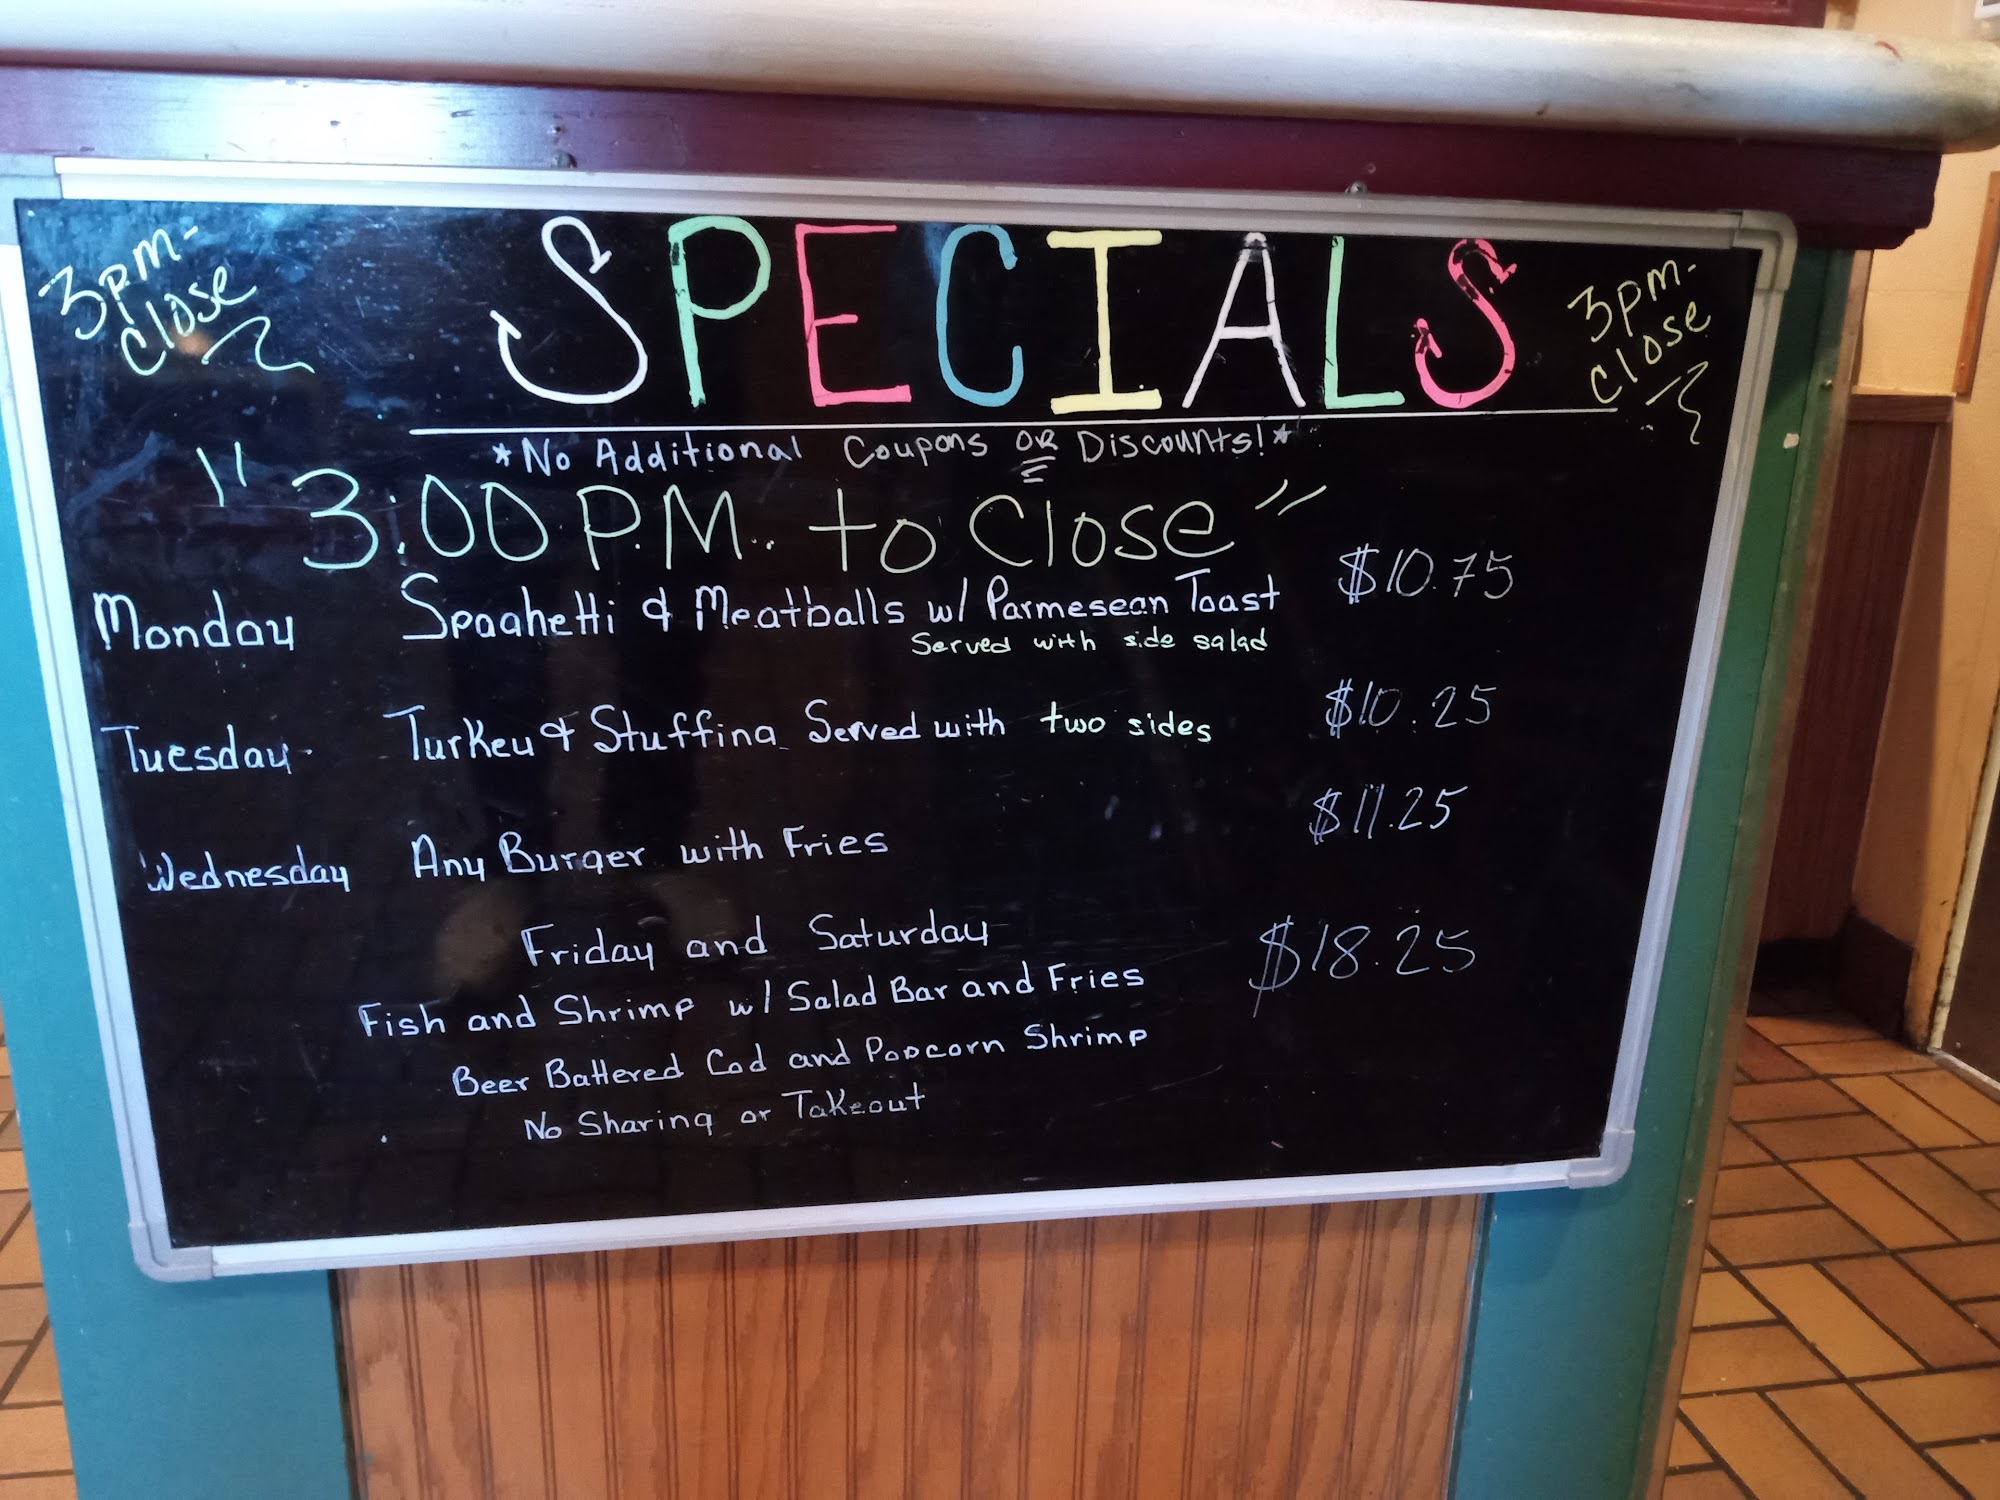 3pm-
close
SPECIALS
3pm-
close
*No Additional Coupons OR Discounts!*
"3:00 P.M. to Close"
Monday Spaghetti & Meatballs w/ Parmesean Toast $10.75
Served with side salad
Tuesday Turkey & Stuffing Served with two sides $10.25
Wednesday Any Burger with Fries $11.25
Friday and Saturday
Fish and Shrimp w/ Salad Bar and Fries $18.25
Beer Battered Cod and Popcorn Shrimp
No Sharing or Takeout